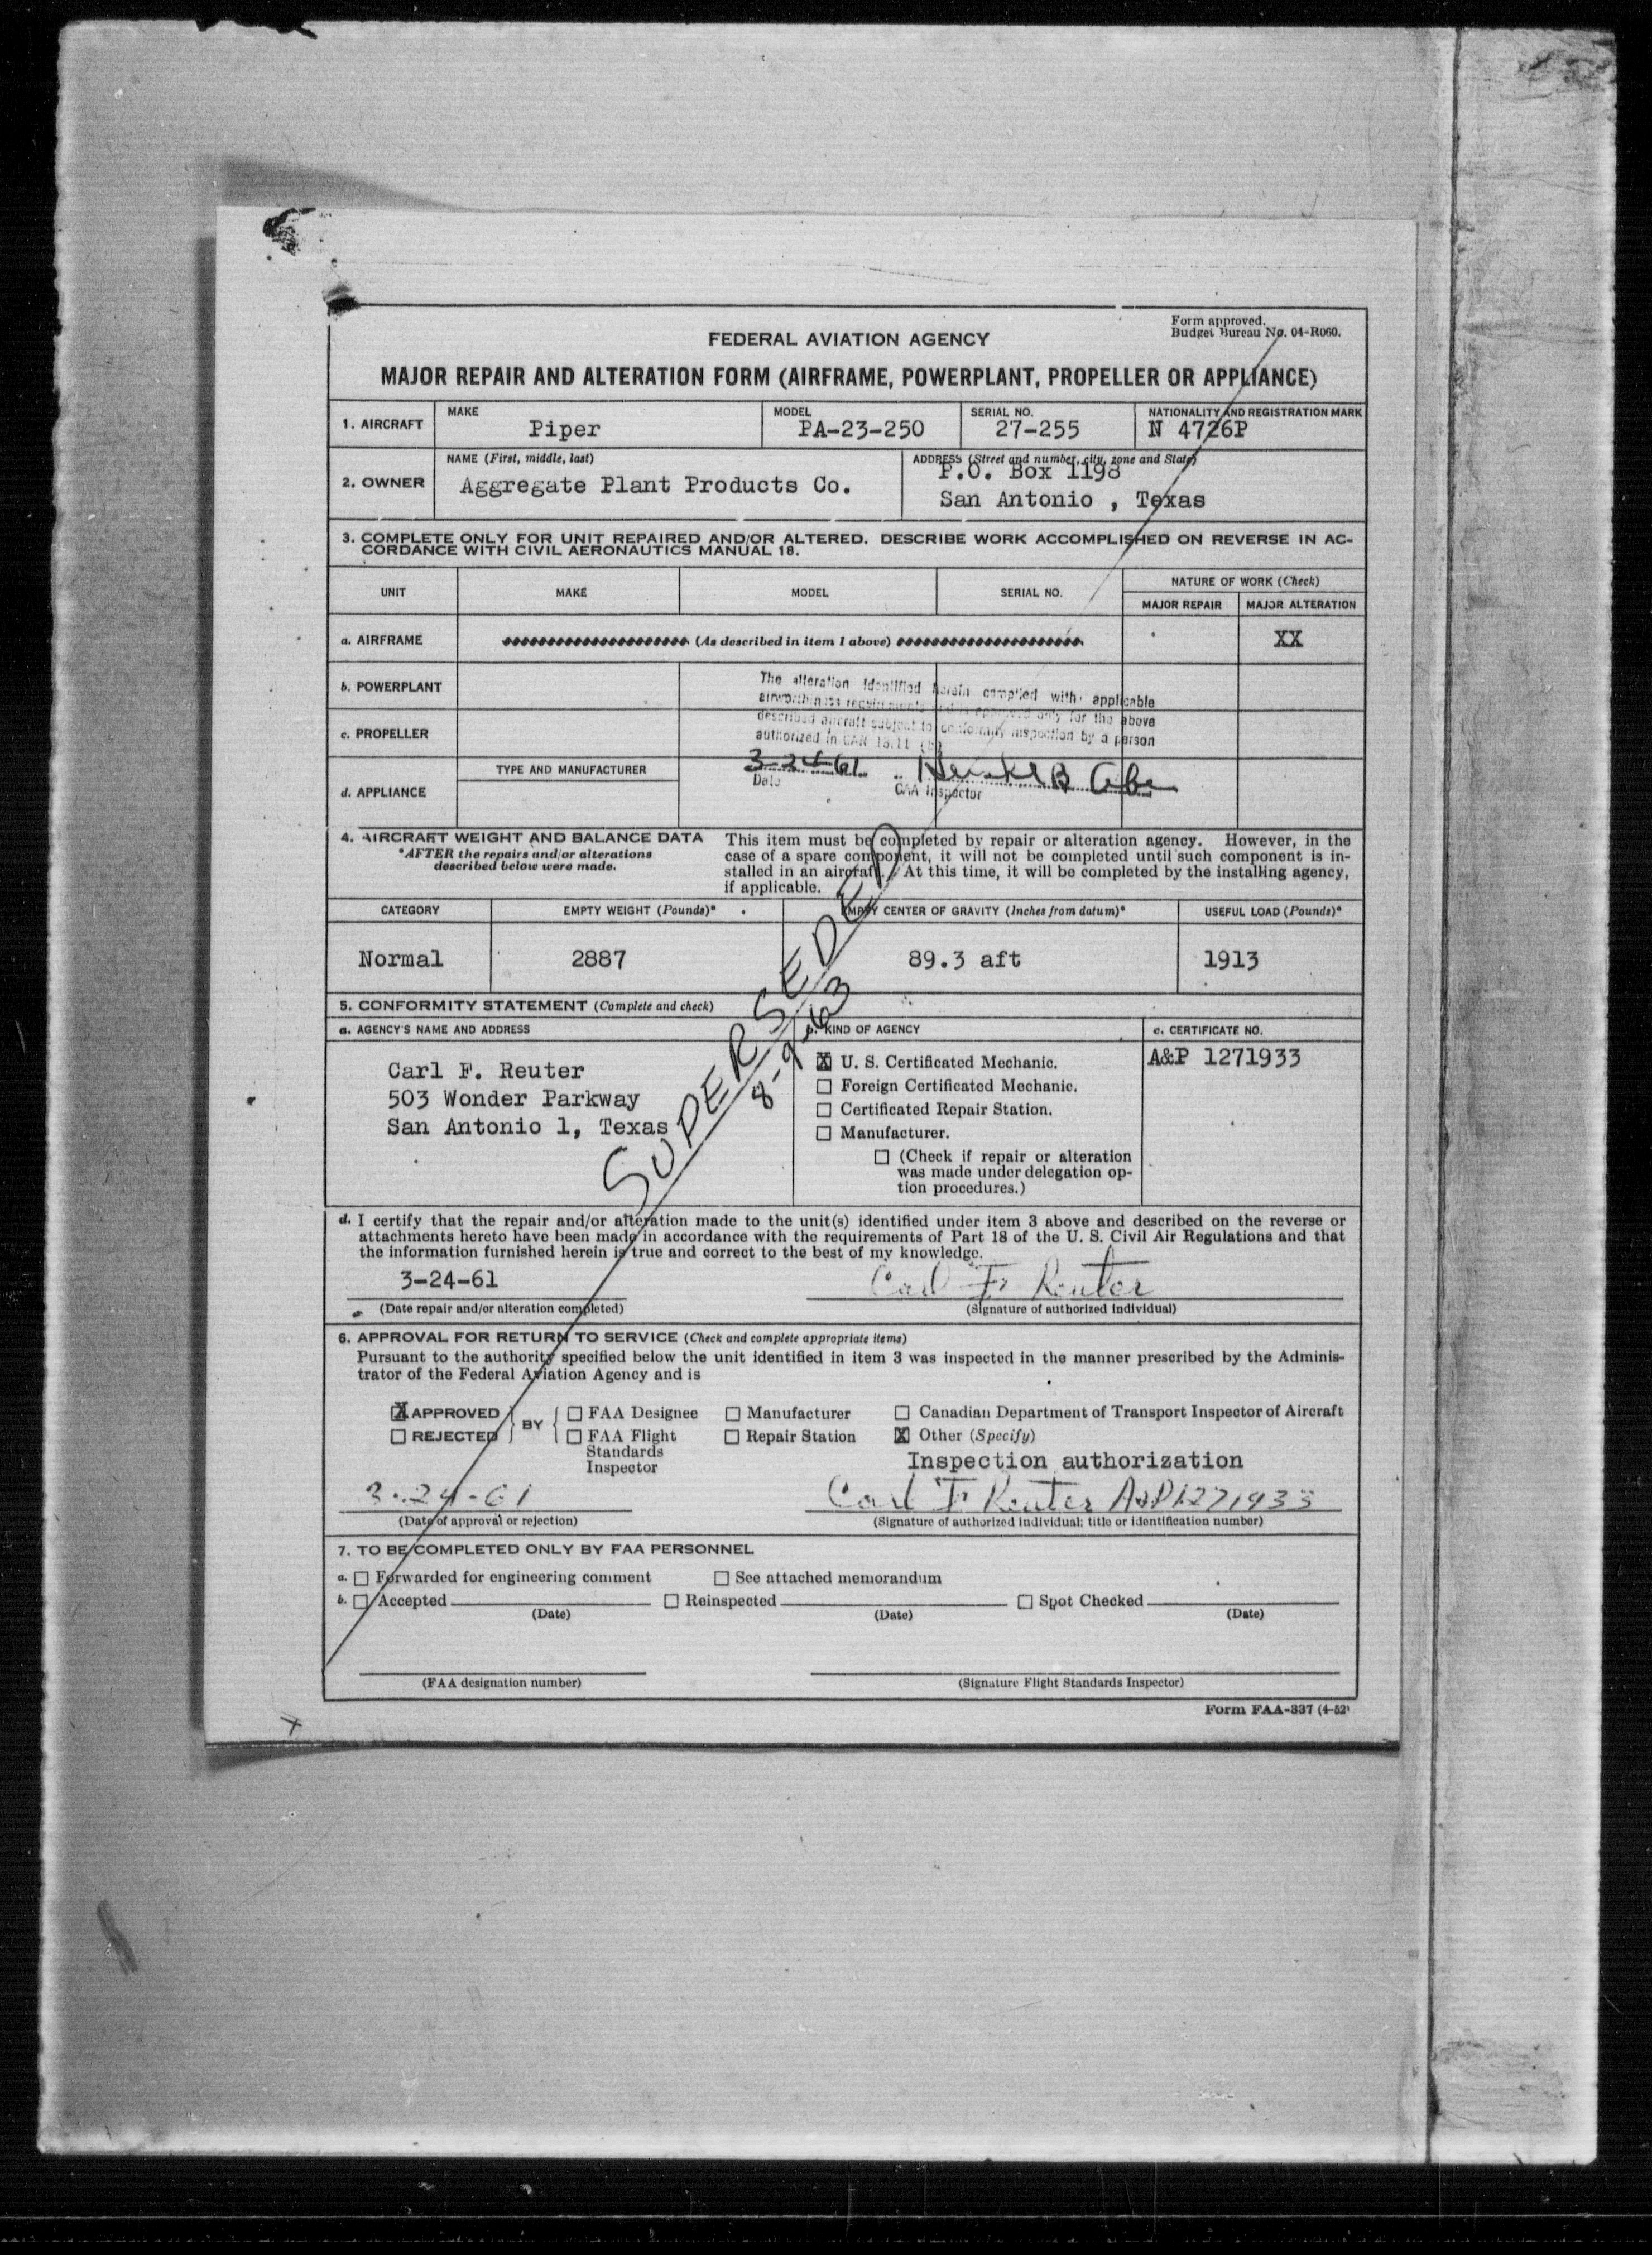 Form approved.
Budget Bureau No. 04-R060.
FEDERAL AVIATION AGENCY
MAJOR REPAIR AND ALTERATION FORM (AIRFRAME, POWERPLANT, PROPELLER OR APPLIANCE)
1. AIRCRAFT
MAKE
Piper
MODEL
PA-23-250
SERIAL NO.
27-255
NATIONALITY AND REGISTRATION MARK
N 4726P
2. OWNER
NAME (First, middle, last)
Aggregate Plant Products Co.
ADDRESS (Street and number, city, zone and State)
P.O. Box 1198
San Antonio , Texas
3. COMPLETE ONLY FOR UNIT REPAIRED AND/OR ALTERED. DESCRIBE WORK ACCOMPLISHED ON REVERSE IN AC-
CORDANCE WITH CIVIL AERONAUTICS MANUAL 18.
UNIT
MAKE
MODEL
SERIAL NO.
NATURE OF WORK (Check)
MAJOR REPAIR
MAJOR ALTERATION
a. AIRFRAME
(As described in item 1 above)
XX
b. POWERPLANT
c. PROPELLER
The alteration identified herein complied with applicable
airworthiness requirements and is approved only for the above
described aircraft subject to conformity inspection by a person
authorized in CAR 18.11
3-24-61
Date
CAA Inspector
d. APPLIANCE
TYPE AND MANUFACTURER
4. AIRCRAFT WEIGHT AND BALANCE DATA
*AFTER the repairs and/or alterations
described below were made.
This item must be completed by repair or alteration agency. However, in the
case of a spare component, it will not be completed until such component is in-
stalled in an aircraft. At this time, it will be completed by the installing agency,
if applicable.
CATEGORY
EMPTY WEIGHT (Pounds)*
EMPTY CENTER OF GRAVITY (Inches from datum)*
USEFUL LOAD (Pounds)*
Normal
2887
89.3 aft
1913
SUPERSEDED
8-9-63
5. CONFORMITY STATEMENT (Complete and check)
a. AGENCY'S NAME AND ADDRESS
b. KIND OF AGENCY
c. CERTIFICATE NO.
Carl F. Reuter
503 Wonder Parkway
San Antonio 1, Texas
X U. S. Certificated Mechanic.
Foreign Certificated Mechanic.
Certificated Repair Station.
Manufacturer.
(Check if repair or alteration
was made under delegation op-
tion procedures.)
A&P 1271933
d. I certify that the repair and/or alteration made to the unit(s) identified under item 3 above and described on the reverse or
attachments hereto have been made in accordance with the requirements of Part 18 of the U. S. Civil Air Regulations and that
the information furnished herein is true and correct to the best of my knowledge.
3-24-61
Carl F. Reuter
(Date repair and/or alteration completed)
(Signature of authorized individual)
6. APPROVAL FOR RETURN TO SERVICE (Check and complete appropriate items)
Pursuant to the authority specified below the unit identified in item 3 was inspected in the manner prescribed by the Adminis-
trator of the Federal Aviation Agency and is
X APPROVED
REJECTED
BY
FAA Designee
FAA Flight
Standards
Inspector
Manufacturer
Repair Station
Canadian Department of Transport Inspector of Aircraft
X Other (Specify)
Inspection authorization
3-24-61
Carl F Reuter A&P1271933
(Date of approval or rejection)
(Signature of authorized individual; title or identification number)
7. TO BE COMPLETED ONLY BY FAA PERSONNEL
a. Forwarded for engineering comment
See attached memorandum
b. Accepted
(Date)
Reinspected
(Date)
Spot Checked
(Date)
(FAA designation number)
(Signature Flight Standards Inspector)
Form FAA-337 (4-52)